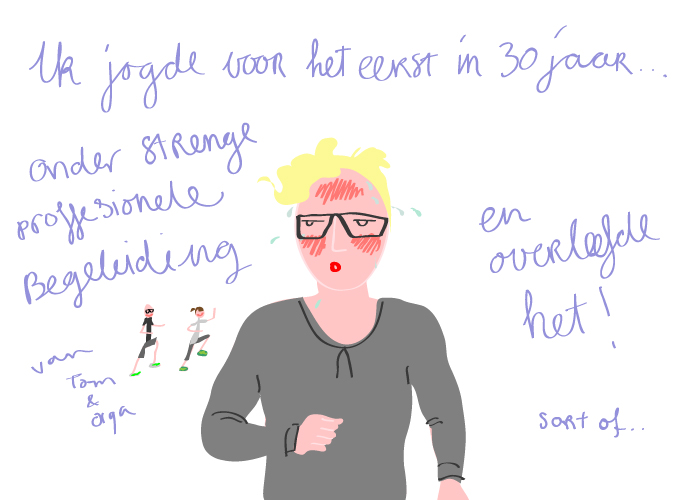 Ik jogde voor het eerst in 30 jaar...
onder strenge
proffesionele
Begeleiding
van
Tom
&
Olga
en
overleefde
het!
sort of..